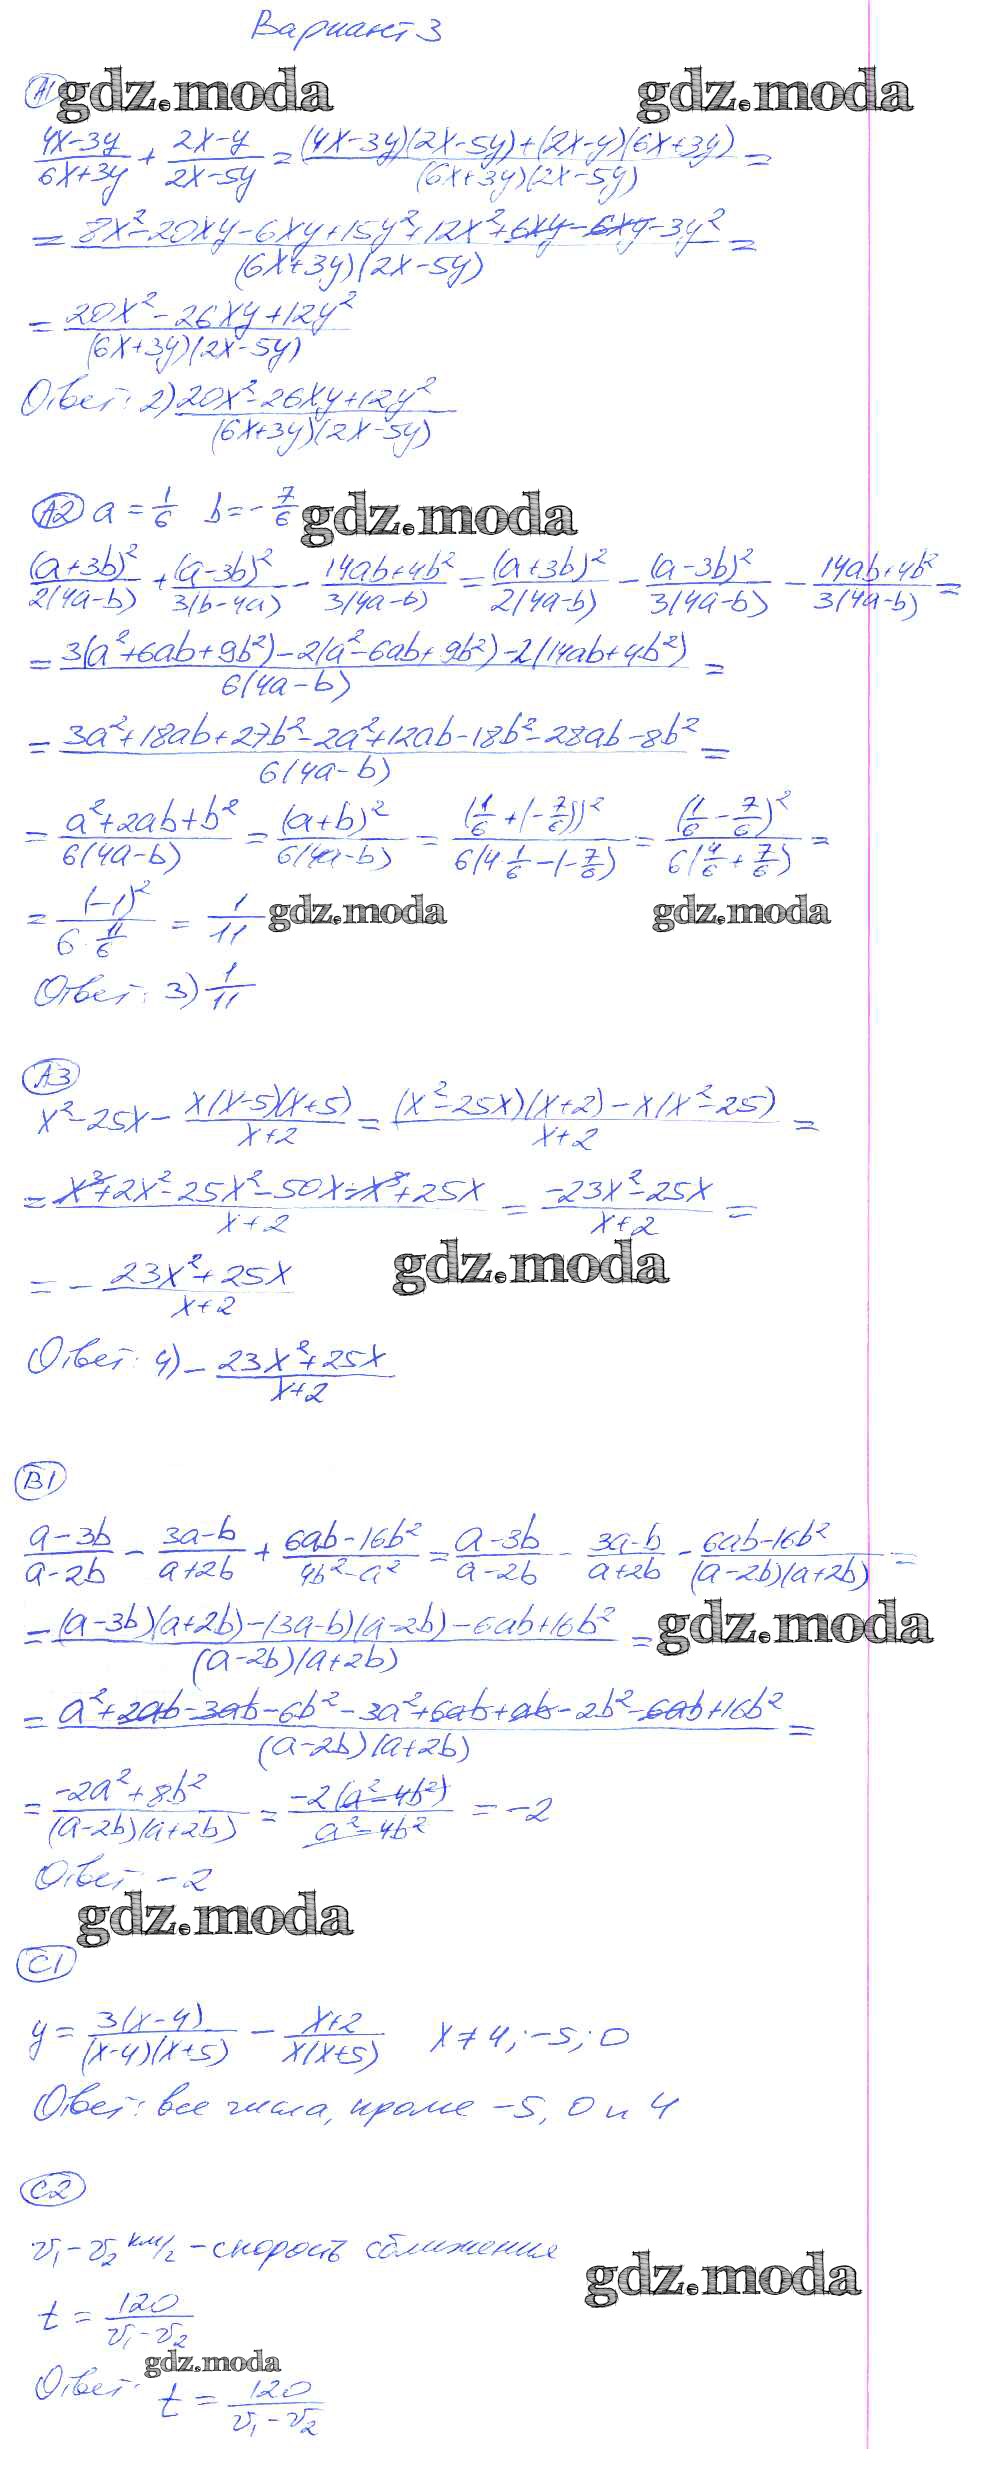 Вариант 3
А1 gdz.moda gdz.moda
(4x-3y)/(6x+3y) + (2x-y)/(2x-5y) = ((4x-3y)(2x-5y)+(2x-y)(6x+3y))/((6x+3y)(2x-5y)) =
= (8x²-20xy-6xy+15y²+12x²+6xy-6xy-3y²)/((6x+3y)(2x-5y)) =
= (20x²-26xy+12y²)/((6x+3y)(2x-5y))
Ответ: 2) (20x²-26xy+12y²)/((6x+3y)(2x-5y))
А2 a = 1/6 b = -7/6 gdz.moda
(a+3b)²/(2(4a-b)) + (a-3b)²/(3(b-4a)) - (14ab+4b²)/(3(4a-b)) = (a+3b)²/(2(4a-b)) - (a-3b)²/(3(4a-b)) - (14ab+4b²)/(3(4a-b)) =
= (3(a²+6ab+9b²)-2(a²-6ab+9b²)-2(14ab+4b²))/(6(4a-b)) =
= (3a²+18ab+27b²-2a²+12ab-18b²-28ab-8b²)/(6(4a-b)) =
= (a²+2ab+b²)/(6(4a-b)) = (a+b)²/(6(4a-b)) = (1/6+(-7/6))²/(6(4·1/6-(-7/6)) = (1/6-7/6)²/(6(4/6+7/6)) =
= (-1)²/(6·11/6) = 1/11 gdz.moda gdz.moda
Ответ: 3) 1/11
А3
x²-25x - x(x-5)(x+5)/(x+2) = ((x²-25x)(x+2)-x(x²-25))/(x+2) =
= (x³+2x²-25x²-50x-x³+25x)/(x+2) = (-23x²-25x)/(x+2) =
= - (23x²+25x)/(x+2) gdz.moda
Ответ: 4) - (23x²+25x)/(x+2)
В1
(a-3b)/(a-2b) - (3a-b)/(a+2b) + (6ab-16b²)/(4b²-a²) = (a-3b)/(a-2b) - (3a-b)/(a+2b) - (6ab-16b²)/((a-2b)(a+2b)) =
= ((a-3b)(a+2b)-(3a-b)(a-2b)-6ab+16b²)/((a-2b)(a+2b)) = gdz.moda
= (a²+2ab-3ab-6b²-3a²+6ab+ab-2b²-6ab+16b²)/((a-2b)(a+2b)) =
= (-2a²+8b²)/((a-2b)(a+2b)) = -2(a²-4b²)/(a²-4b²) = -2
Ответ: -2
gdz.moda
С1
y = 3(x-4)/((x-4)(x+5)) - (x+2)/(x(x+5)) x≠4; -5; 0
Ответ: все числа, кроме -5, 0 и 4
С2
v₁-v₂ км/ч - скорость сближения
gdz.moda
t = 120/(v₁-v₂)
gdz.moda
Ответ: t = 120/(v₁-v₂)